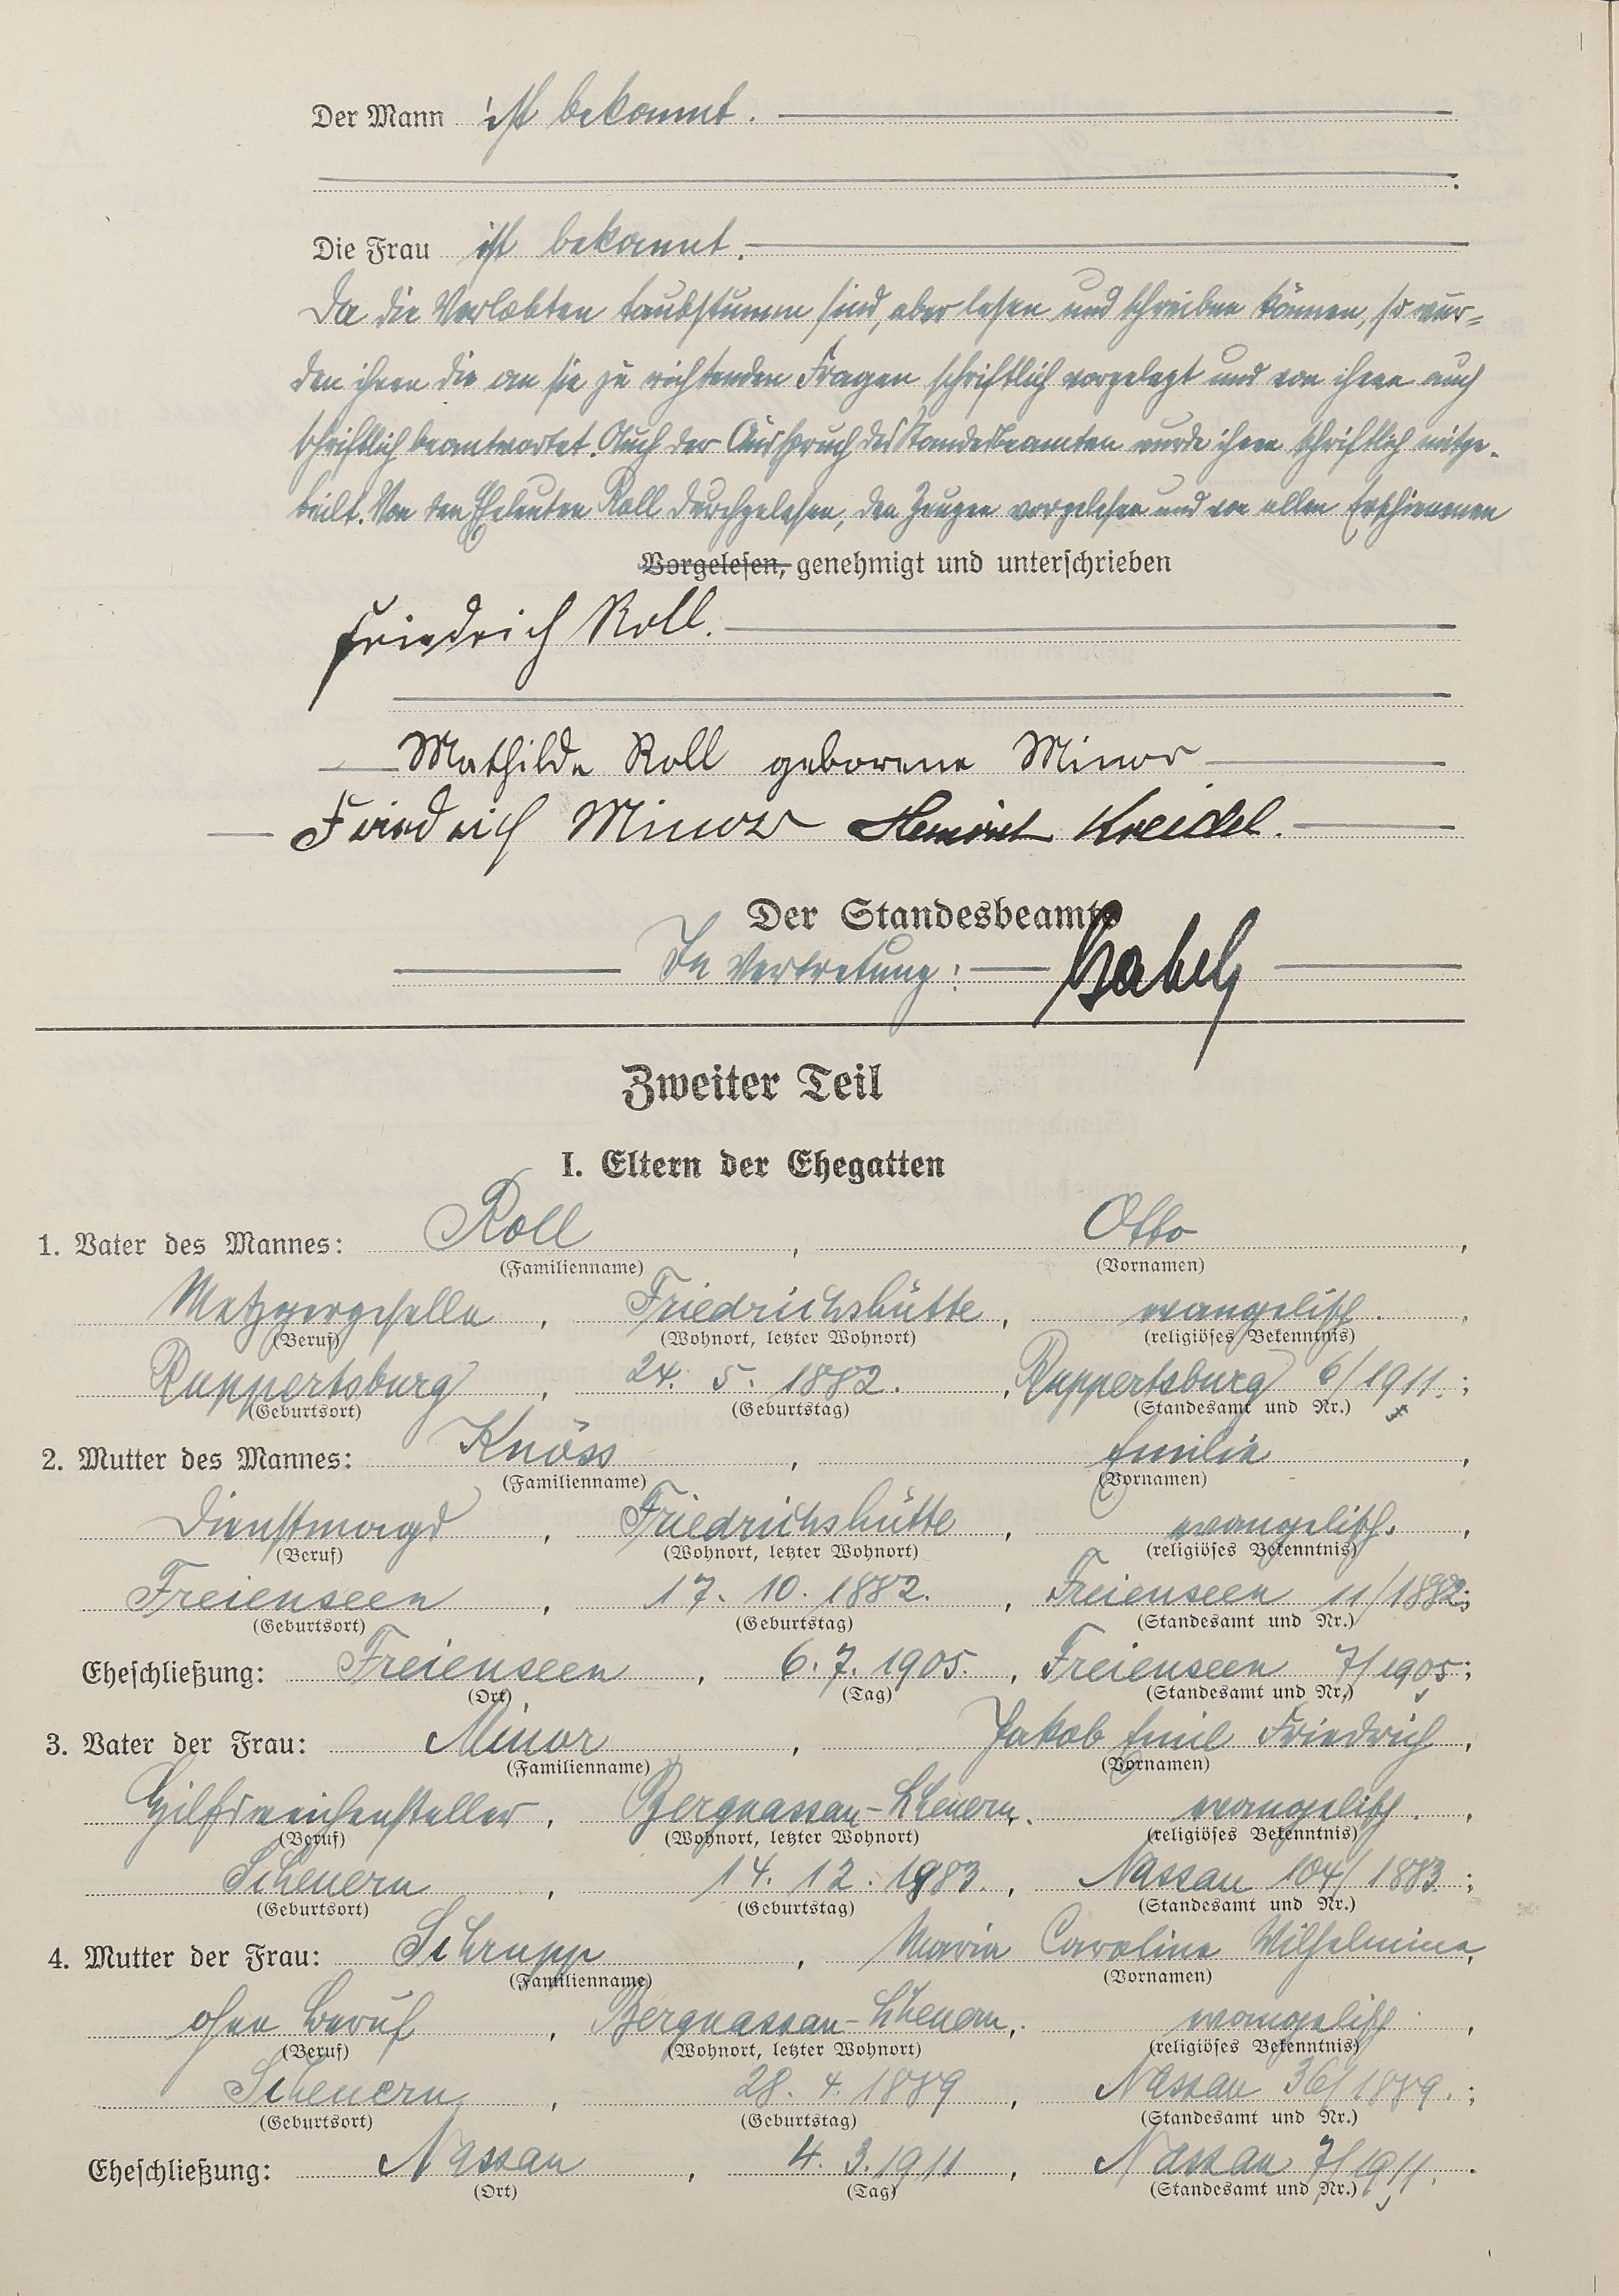 Der Mann ist bekannt.
Die Frau ist bekannt.
Da die Verlobten taubstumm sind, aber lesen und schreiben können, so wur-
den ihnen die an sie zu richtenden Fragen schriftlich vorgelegt und von ihnen auch
schriftlich beantwortet. Auch der Ausspruch des Standesbeamten wurde ihnen schriftlich mitge-
teilt. Von den Eheleuten Roll durchgelesen, den Zeugen vorgelesen und von allen Erschienenen
Vorgelesen, genehmigt und unterschrieben
Friedrich Roll.
Mathilde Roll geborene Minor
Friedrich Minor Kreidel.
Der Standesbeamte
In Vertretung:
Zweiter Teil
I. Eltern der Ehegatten
1. Vater des Mannes: Roll, Otto,
(Familienname) (Vornamen)
Metzgergeselle, Friedrichshütte, evangelisch,
(Beruf) (Wohnort, letzter Wohnort) (religiöses Bekenntnis)
Ruppertsburg, 24. 5. 1882., Ruppertsburg 6/1911.;
(Geburtsort) (Geburtstag) (Standesamt und Nr.)
2. Mutter des Mannes: Knöss, Emilie,
(Familienname) (Vornamen)
Dienstmagd, Friedrichshütte, evangelisch.,
(Beruf) (Wohnort, letzter Wohnort) (religiöses Bekenntnis)
Freienseen, 17. 10. 1882., Freienseen 11/1882;
(Geburtsort) (Geburtstag) (Standesamt und Nr.)
Eheschließung: Freienseen, 6. 7. 1905., Freienseen 7/1905;
(Ort) (Tag) (Standesamt und Nr.)
3. Vater der Frau: Minor, Jakob Emil Friedrich,
(Familienname) (Vornamen)
Hilfsweichensteller, Bergnassau-Scheuern, evangelisch.,
(Beruf) (Wohnort, letzter Wohnort) (religiöses Bekenntnis)
Scheuern, 14. 12. 1983., Nassau 104/1883.;
(Geburtsort) (Geburtstag) (Standesamt und Nr.)
4. Mutter der Frau: Schrupp, Maria Caroline Wilhelmine,
(Familienname) (Vornamen)
ohne Beruf, Bergnassau-Scheuern, evangelisch,
(Beruf) (Wohnort, letzter Wohnort) (religiöses Bekenntnis)
Scheuern, 28. 4. 1889, Nassau 36/1889.;
(Geburtsort) (Geburtstag) (Standesamt und Nr.)
Eheschließung: Nassau, 4. 3. 1911, Nassau 7/1911.
(Ort) (Tag) (Standesamt und Nr.)